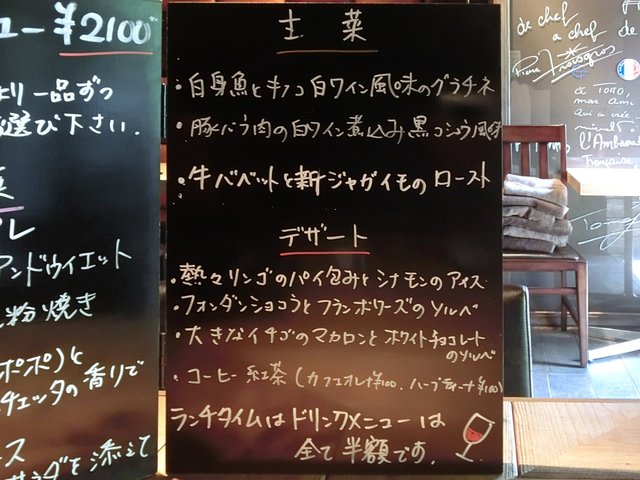 ュー ¥2100
より一品ずつ
選び下さい.
菜
レ
アンドゥイエット
粉焼き
ポポ)と
チェッタの香りで
ース
サラダを添えて
主菜
・白身魚とキノコ白ワイン風味のグラチネ
・豚バラ肉の白ワイン煮込み黒コショウ風味
・牛バベットと新ジャガイモのロースト
デザート
・熱々リンゴのパイ包みとシナモンのアイス
・フォンダンショコラとフランボワーズのソルベ
・大きなイチゴのマカロンとホワイトチョコレート
のソルベ
・コーヒー 紅茶(カフェオレ¥100、ハーブティー¥100)
ランチタイムはドリンクメニューは
全て半額です.
de chef
a chef
de
Pierre Troisgros
à TORU,
mon Ami
qui a créé
l'Ambassade
Française